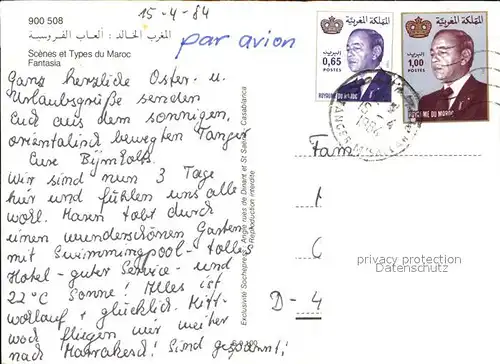 900 508
15-4-84
المغرب الخالد : ألعاب الفروسية
Scènes et Types du Maroc
Fantasia
par avion
المملكة المغربية
البريد
0,65
POSTES
ROYAUME DU MAROC
المملكة المغربية
البريد
1,00
POSTES
ROYAUME DU MAROC
TANGER
1984
Ganz herzliche Oster- u.
Urlaubsgrüße senden
Euch aus dem sonnigen,
orientalisch bewegten Tanger
Eure
Wir sind nun 3 Tage
hier und fühlen uns alle
wohl. Maren tobt durch
einen wunderschönen Garten
mit Swimmingpool - tolles
Hotel - guter Service - und
22°C Sonne! Alles ist
wohlauf + glücklich. Mitt-
woch fliegen wir weiter
nach Marrakesch! Sind gespannt!
Exclusivité Sochepress Angle rues de Dinant et St Saëns Casablanca
© Reproduction interdite
Fam
D-4
privacy protection
Datenschutz